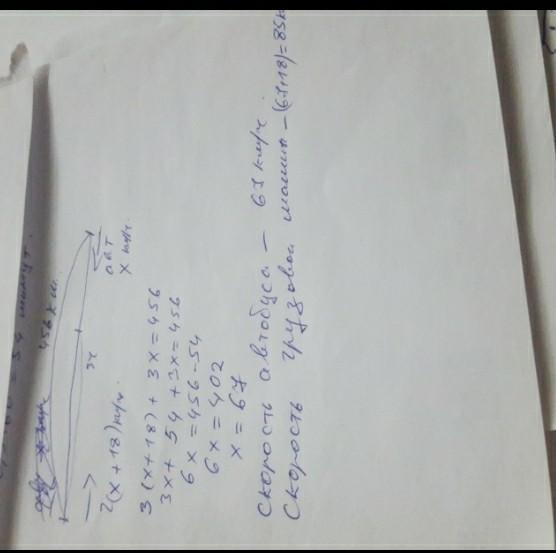 = 54 минут.
456 км.
3ч
авт
x км/ч.
2(x+18) км/ч.
3(x+18)+3x=456
3x+54+3x=456
6x=456-54
6x=402
x=67
Скорость автобуса - 67 км/ч.
Скорость грузовой машин - (67+18)=85к